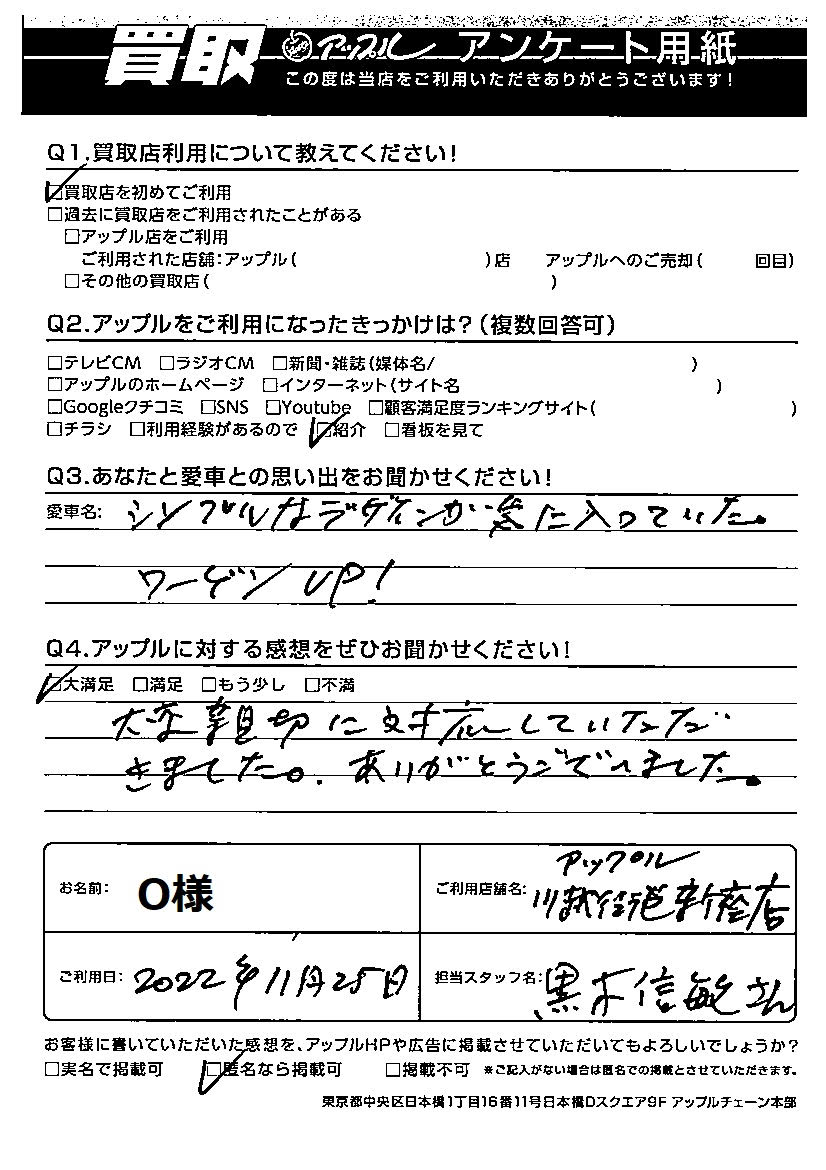 買取 アップル アンケート用紙
この度は当店をご利用いただきありがとうございます！
Q1.買取店利用について教えてください！
☑買取店を初めてご利用
□過去に買取店をご利用されたことがある
□アップル店をご利用
ご利用された店舗：アップル（ ）店 アップルへのご売却（ 回目）
□その他の買取店（ ）
Q2.アップルをご利用になったきっかけは？（複数回答可）
□テレビCM □ラジオCM □新聞・雑誌（媒体名/ ）
□アップルのホームページ □インターネット（サイト名 ）
□Googleクチコミ □SNS □Youtube □顧客満足度ランキングサイト（ ）
□チラシ □利用経験があるので ☑紹介 □看板を見て
Q3.あなたと愛車との思い出をお聞かせください！
愛車名： シンプルなデザインが気に入っていた。
ワーゲン UP!
Q4.アップルに対する感想をぜひお聞かせください！
☑大満足 □満足 □もう少し □不満
大変親切に対応していただ
きました。ありがとうございました。
お名前： O様
ご利用店舗名： アップル
川越街道新座店
ご利用日： 2022年11月25日
担当スタッフ名： 黒木信敏さん
お客様に書いていただいた感想を、アップルHPや広告に掲載させていただいてもよろしいでしょうか？
□実名で掲載可 ☑匿名なら掲載可 □掲載不可 ※ご記入がない場合は匿名での掲載とさせていただきます。
東京都中央区日本橋1丁目16番11号日本橋Dスクエア9F アップルチェーン本部